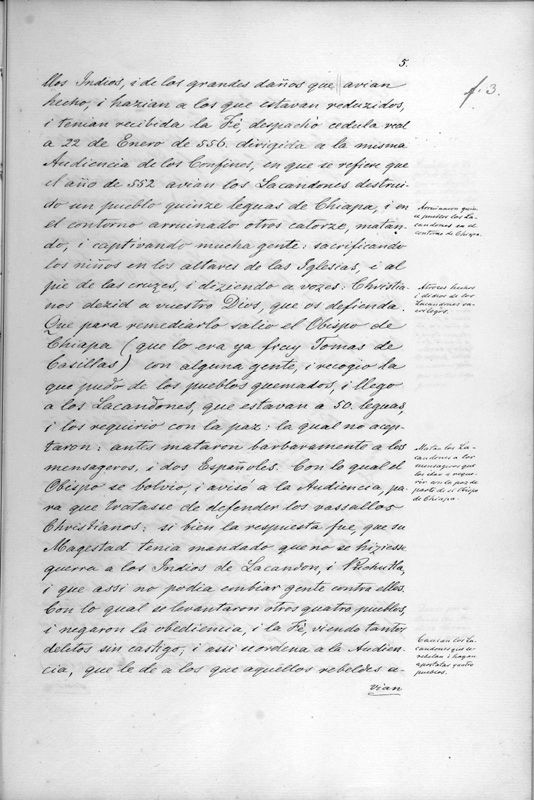 5.
f. 3.
llos Indios, i de los grandes daños que avian
hecho, i hazian a los que estavan reduzidos,
i tenian recibida la Fè, despachò cedula real
a 22 de Enero de 556. dirigida a la misma
Audiencia de los Confines, en que se refiere que
el año de 552 avian los Lacandones destrui-
do un pueblo quinze leguas de Chiapa, i en
el contorno arruinado otros catorze, matan-
do, i captivando mucha gente: sacrificando
los niños en los altares de las Iglesias, i al
pie de las cruzes, i diziendo a vozes: Christia-
nos dezid a vuestro Dios, que os defienda.
Que para remediarlo salio el Obispo de
Chiapa (que lo era ya fray Tomas de
Casillas) con alguna gente, i recogio la
que pudo de los pueblos quemados, i llegó
a los Lacandones, que estavan a 50. leguas,
i los requirio con la paz: la qual no acep-
taron: antes mataron barbaramente a los
mensageros, i dos Españoles. Con lo qual el
Obispo se bolvio, i avisó a la Audiencia, pa-
ra que tratasse de defender los vassallos
Christianos: si bien la respuesta fue, que su
Magestad tenia mandado que no se hiziesse
guerra a los Indios de Lacandon, i Puchutla,
i que assi no podia embiar gente contra ellos.
Con lo qual se levantaron otros quatro pueblos,
i negaron la obediencia, i la Fè, viendo tantos
delitos sin castigo; i assi se ordena a la Audien-
cia, que le dè a los que aquellos rebeldes a-
vian
Arruinaron quin-
ze pueblos los La-
candones en el
contorno de Chiapa.
Atroces hechos
i dichos de los
Lacandones sa-
crilegos.
Matan los La-
candones a los
mensageros que
los iban a reque-
rir con la paz de
parte de el Obispo
de Chiapa.
Causan los La-
candones que se
rebelan i hagan
apostatas quatro
pueblos.